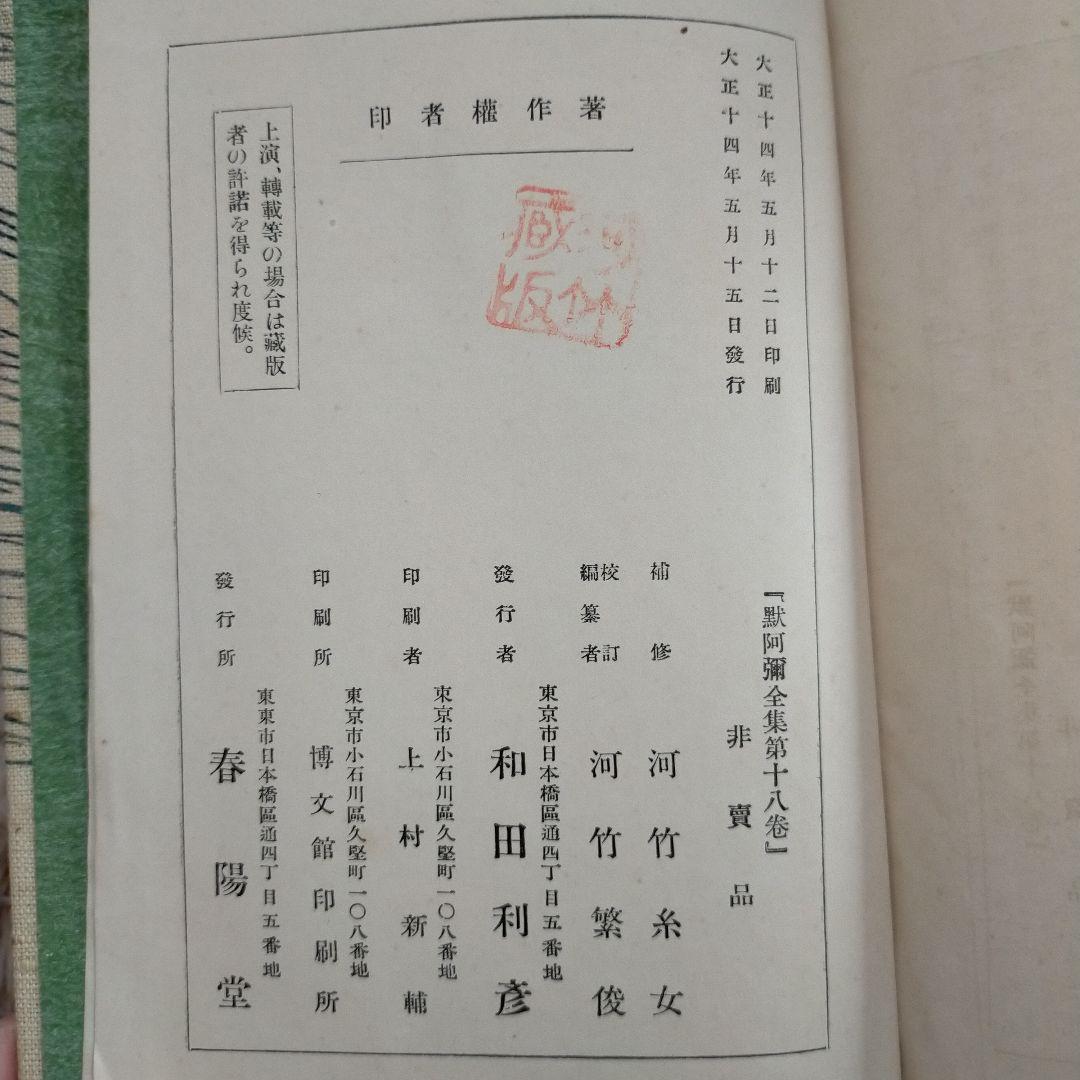 大正十四年五月十二日印刷
大正十四年五月十五日發行
著作權者印
河竹
藏版
上演、轉載等の場合は藏版
者の許諾を得られ度候。
『默阿彌全集第十八卷』
非賣品
補修 河竹糸女
校訂
編纂者 河竹繁俊
東京市日本橋區通四丁目五番地
發行者 和田利彥
東京市小石川區久堅町一〇八番地
印刷者 上村新輔
東京市小石川區久堅町一〇八番地
印刷所 博文館印刷所
東東市日本橋區通四丁目五番地
發行所 春陽堂